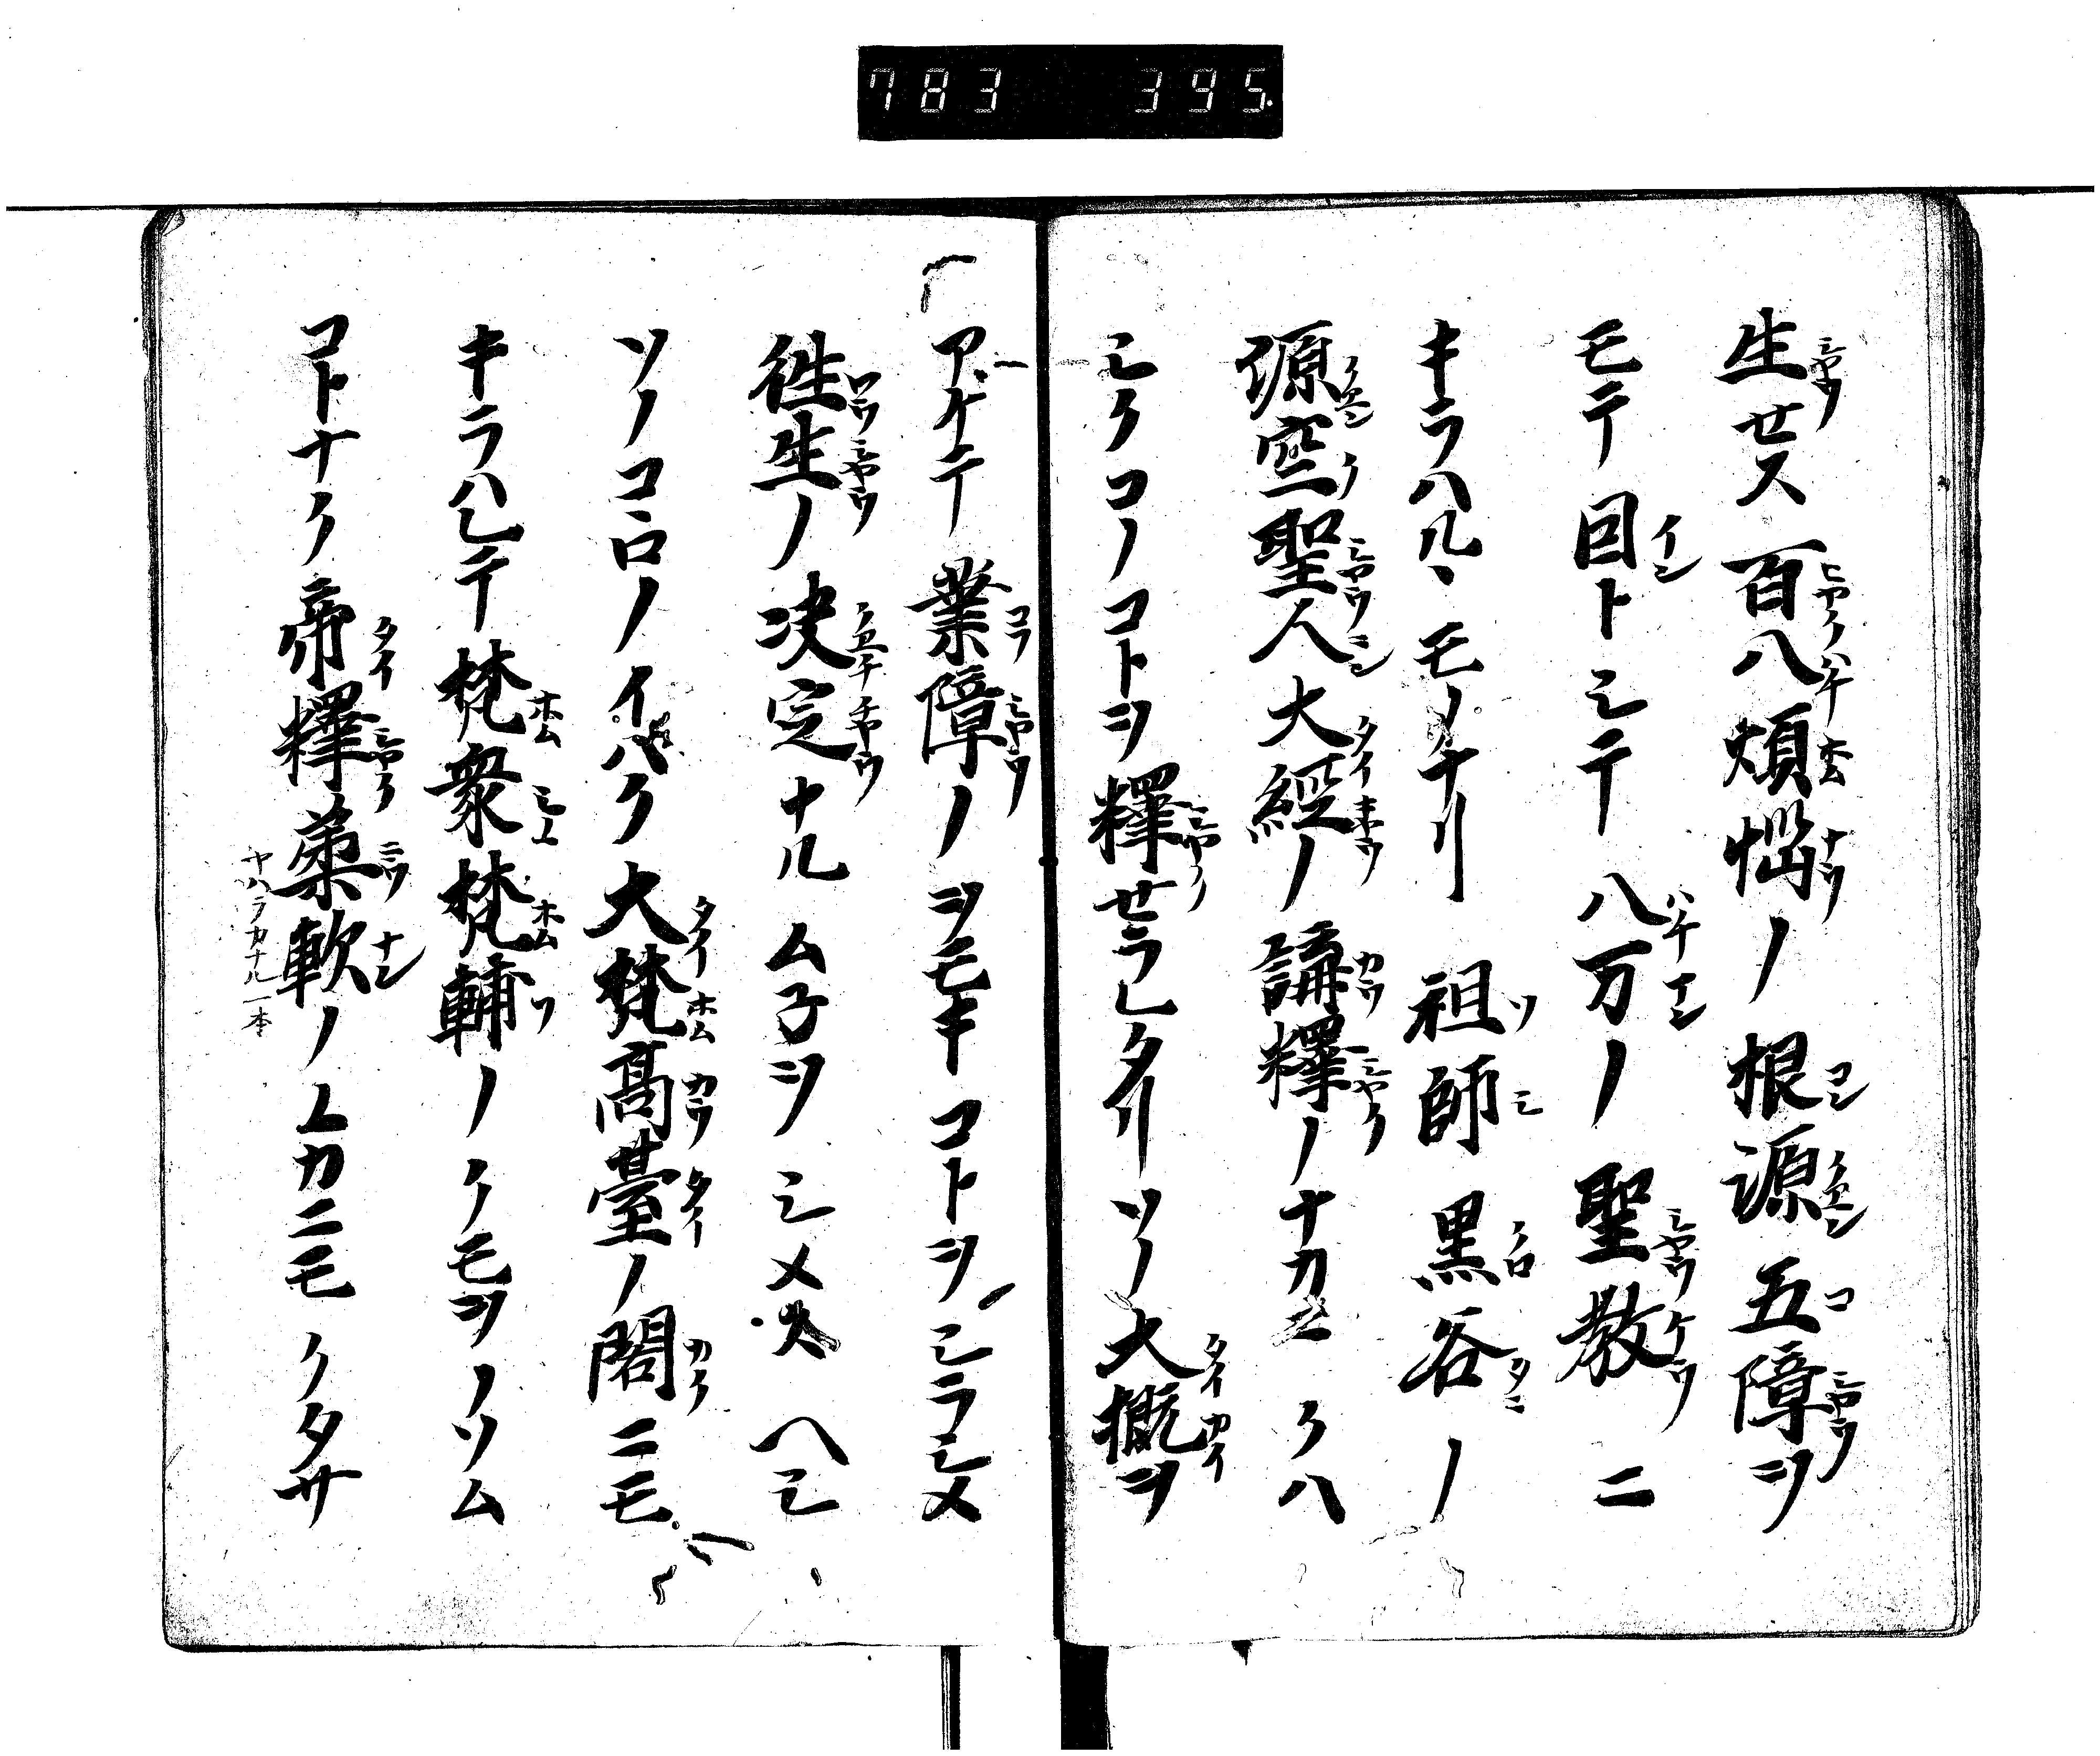 783 395
生セス百八煩惱ノ根源五障ヲ
モテ因トシテ八万ノ聖教ニ
キラハルヽモノナリ祖師黒谷ノ
源空聖人大經ノ講釋ノナカニクハ
シクコノコトヲ釋セラレタリソノ大概ヲ
アケテ業障ノヲモキコトヲシラシメ
徃生ノ决定ナルムネヲシメスヘシ
ソノコヽロノイハク大梵高臺ノ閣ニモ
キラハレテ梵衆梵輔ノクモヲノソム
コトナク帝釋葇軟ノユカニモクタサ
ヤハラカナル一本